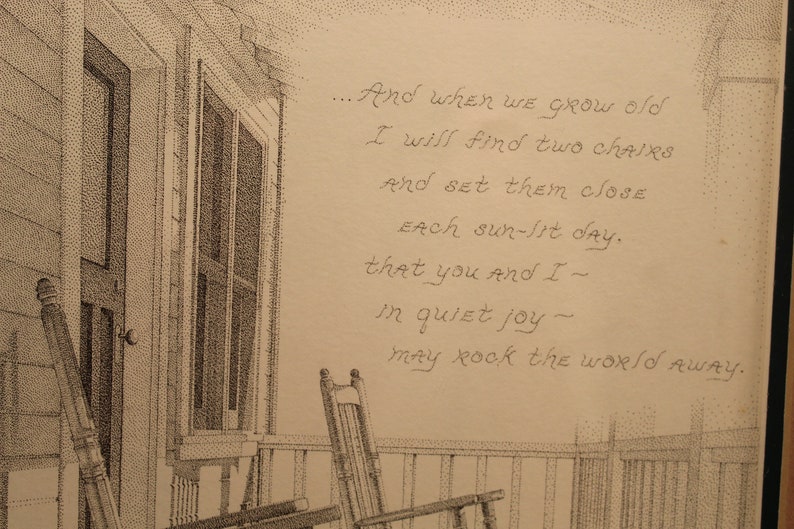 ...And when we grow old
I will find two chairs
and set them close
each sun-lit day.
that you and I ~
in quiet joy ~
may rock the world away.